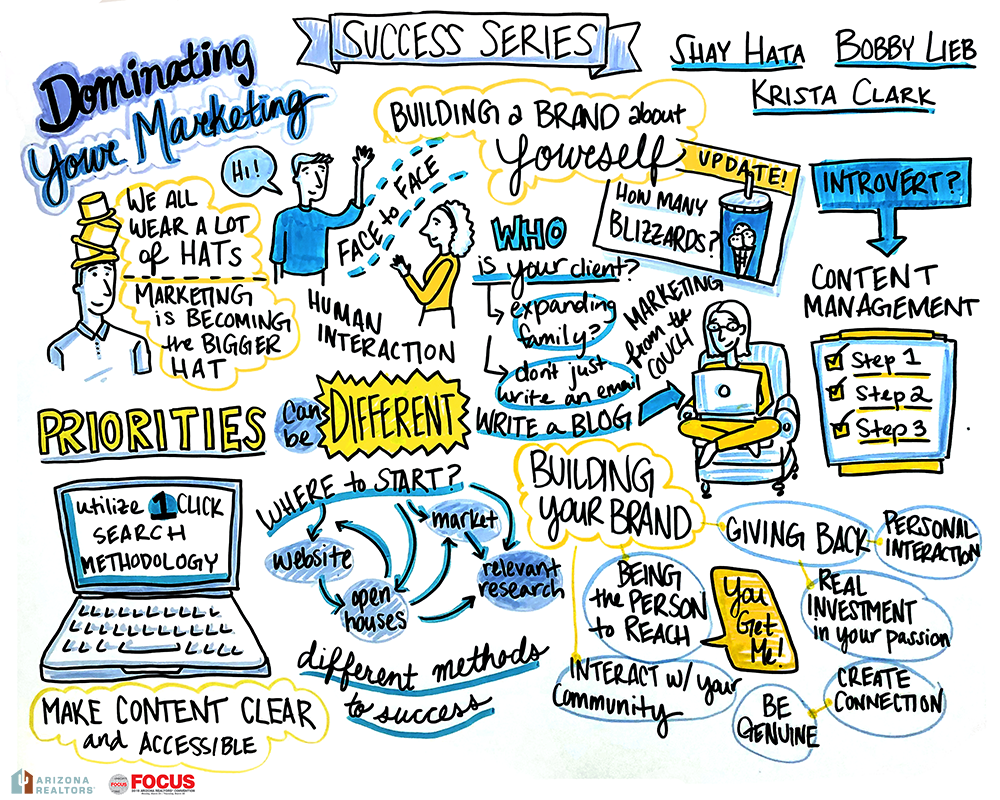 SUCCESS SERIES
SHAY HATA
BOBBY LIEB
KRISTA CLARK
Dominating
Your Marketing
WE ALL
WEAR A LOT
of HATS
MARKETING
iS BECOMING
the BIGGER
HAT
Hi!
FACE to FACE
HUMAN
INTERACTION
BUILDING a BRAND about
Yourself
UPDATE!
HOW MANY
BLIZZARDS?
WHO
is your client?
expanding
family?
don't just
write an email
WRITE a BLOG
MARKETING
from the
COUCH
INTROVERT?
CONTENT
MANAGEMENT
Step 1
Step 2
Step 3
PRIORITIES
Can
be
DIFFERENT
utilize 1 CLICK
SEARCH
METHODOLOGY
MAKE CONTENT CLEAR
and ACCESSIBLE
WHERE to START?
website
market
open
houses
relevant
research
different methods
to success
BUILDING
YOUR BRAND
GIVING BACK
PERSONAL
INTERACTION
BEING
the PERSON
to REACH
You
Get
Me!
REAL
INVESTMENT
in your passion
INTERACT w/ your
Community
BE
GENUINE
CREATE
CONNECTION
ARIZONA
REALTORS®
FOCUS